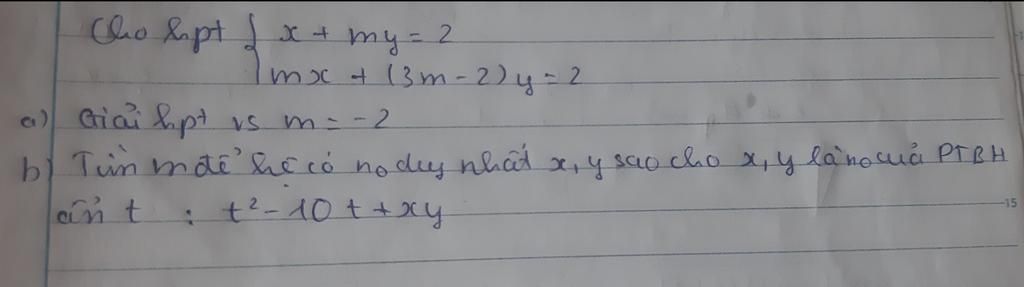 Cho hpt { x + my = 2
mx + (3m - 2)y = 2
a) Giải hpt vs m = -2
b) Tìm m để hệ có no duy nhất x, y sao cho x, y là no của PTBH
ẩn t : t² - 10t + xy
15